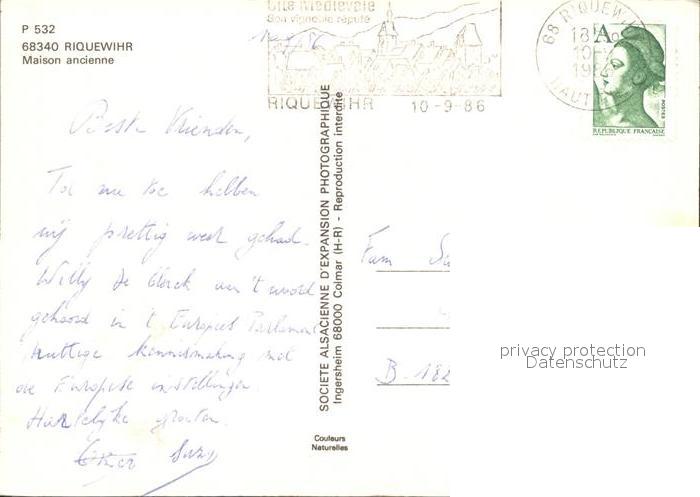 P 532
68340 RIQUEWIHR
Maison ancienne
Cité Médiévale
Son vignoble réputé
RIQUEWIHR 10-9-86
68 RIQUEWIHR
18 H
10-9
1986
HAUT
A
POSTES
REPUBLIQUE FRANÇAISE
Beste Vrienden,
Tot nu toe hebben
wij prettig weer gehad.
Willy de Clerck aan 't woord
gehoord in 't Europees Parlement
nuttige kennismaking met
de Europese instellingen.
Hartelijke groeten.
Suzy
SOCIETE ALSACIENNE D'EXPANSION PHOTOGRAPHIQUE
Ingersheim 68000 Colmar (H-R) - Reproduction interdite
Couleurs
Naturelles
Fam
B-182
privacy protection
Datenschutz